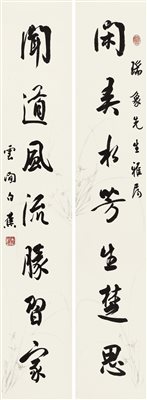 瑞象先生雅屬
閑弄水芳生楚思
聞道風流勝習家
雲間白蕉